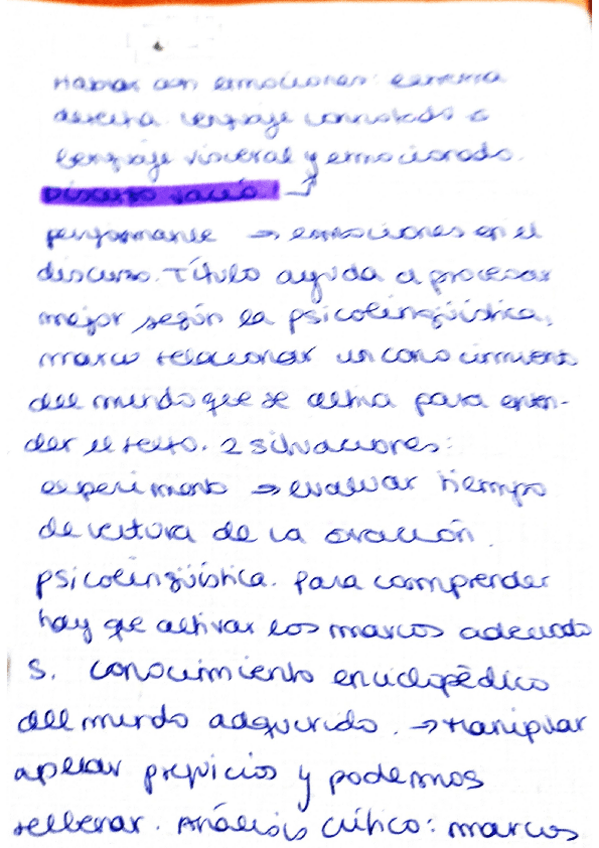 Hablar con emociones: extrema
derecha lenguaje connotado a
lenguaje visceral y emocionado.
Discurso vacío!
performance → emociones en el
discurso. Título ayuda a procesar
mejor según la psicolingüística,
marco relacionar un conocimiento
del mundo que se activa para enten-
der el texto. 2 situaciones:
experimento → evaluar tiempo
de lectura de la oración.
psicolingüística. Para comprender
hay que activar los marcos adecuado
s. conocimiento enciclopédico
del mundo adquirido. → Manipular
apelar prejuicios y podemos
rellenar. Análisis crítico: marcos